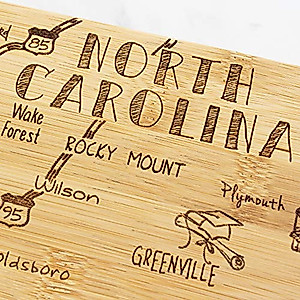 85
NORTH
CAROLINA
Wake
Forest
ROCKY MOUNT
Wilson
Plymouth
95
GREENVILLE
oldsboro